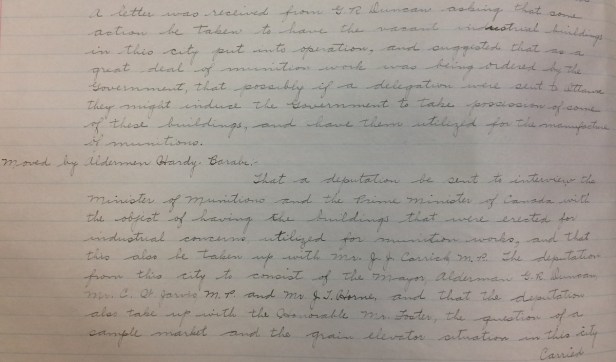 A letter was received from G. R. Duncan asking that some
action be taken to have the vacant industrial buildings
in this city put into operation, and suggested that as a
great deal of munition work was being ordered by the
Government, that possibly if a delegation were sent to Ottawa
they might induce the Government to take possession of some
of these buildings, and have them utilized for the manufacture
of munitions.
Moved by Aldermen Hardy - Barabe.-
That a deputation be sent to interview the
Minister of Munitions and the Prime Minister of Canada with
the object of having the buildings that were erected for
industrial concerns utilized for munition works, and that
this also be taken up with Mr. J. J. Carrick M.P. The deputation
from this city to consist of the Mayor, Alderman G. R. Duncan
Mr. C. W. Jarvis M.P. and Mr. J. T. Horne, and that the deputation
also take up with the Honorable Mr. Foster, the question of a
sample market and the grain elevator situation in this city
Carried